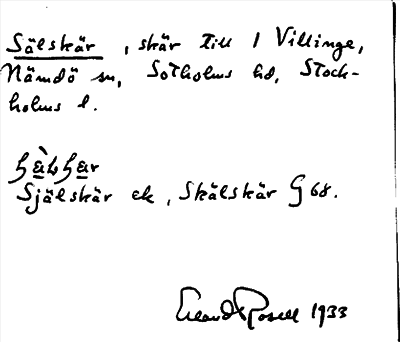 Sälskär, skär till 1 Villinge,
Nämdö sn, Sotholms hd, Stock-
holms l.
Själskär ek, Skälskär G 68.
Erland Rosell 1933